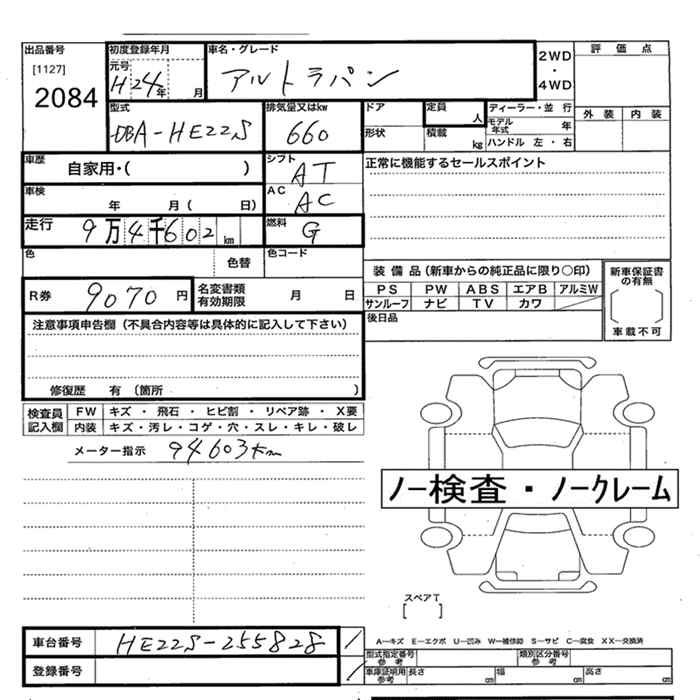 出品番号
[1127]
2084
初度登録年月
元号
H24年 月
車名・グレード
アルトラパン
2WD
・
4WD
評価点
外装 内装
型式
DBA-HE22S
排気量又はkw
660
ドア
形状
定員
人
積載
kg
ディーラー・並行
モデル年式 年
ハンドル 左・右
車歴
自家用・( )
シフト
AT
正常に機能するセールスポイント
車検
年 月( 日)
AC
AC
走行
9万4千602km
燃料
G
色
色替
色コード
R券
9070円
名変書類有効期限 月 日
装備品(新車からの純正品に限り○印)
PS PW ABS エアB アルミW
サンルーフ ナビ TV カワ
新車保証書の有無
[ ]
車載不可
後日品
注意事項申告欄(不具合内容等は具体的に記入して下さい)
修復歴 有 (箇所 )
検査員記入欄
FW キズ・飛石・ヒビ割・リペア跡・X要
内装 キズ・汚レ・コゲ・穴・スレ・キレ・破レ
メーター指示 94603km
ノー検査・ノークレーム
スペアT
[ ]
車台番号 HE22S-255828
登録番号
A―キズ E―エクボ U―凹み W―補修跡 S―サビ C―腐食 XX―交換済
型式指定番号
参考
類別区分番号
参考
車庫証明用
参考
長さ cm 幅 cm 高さ cm